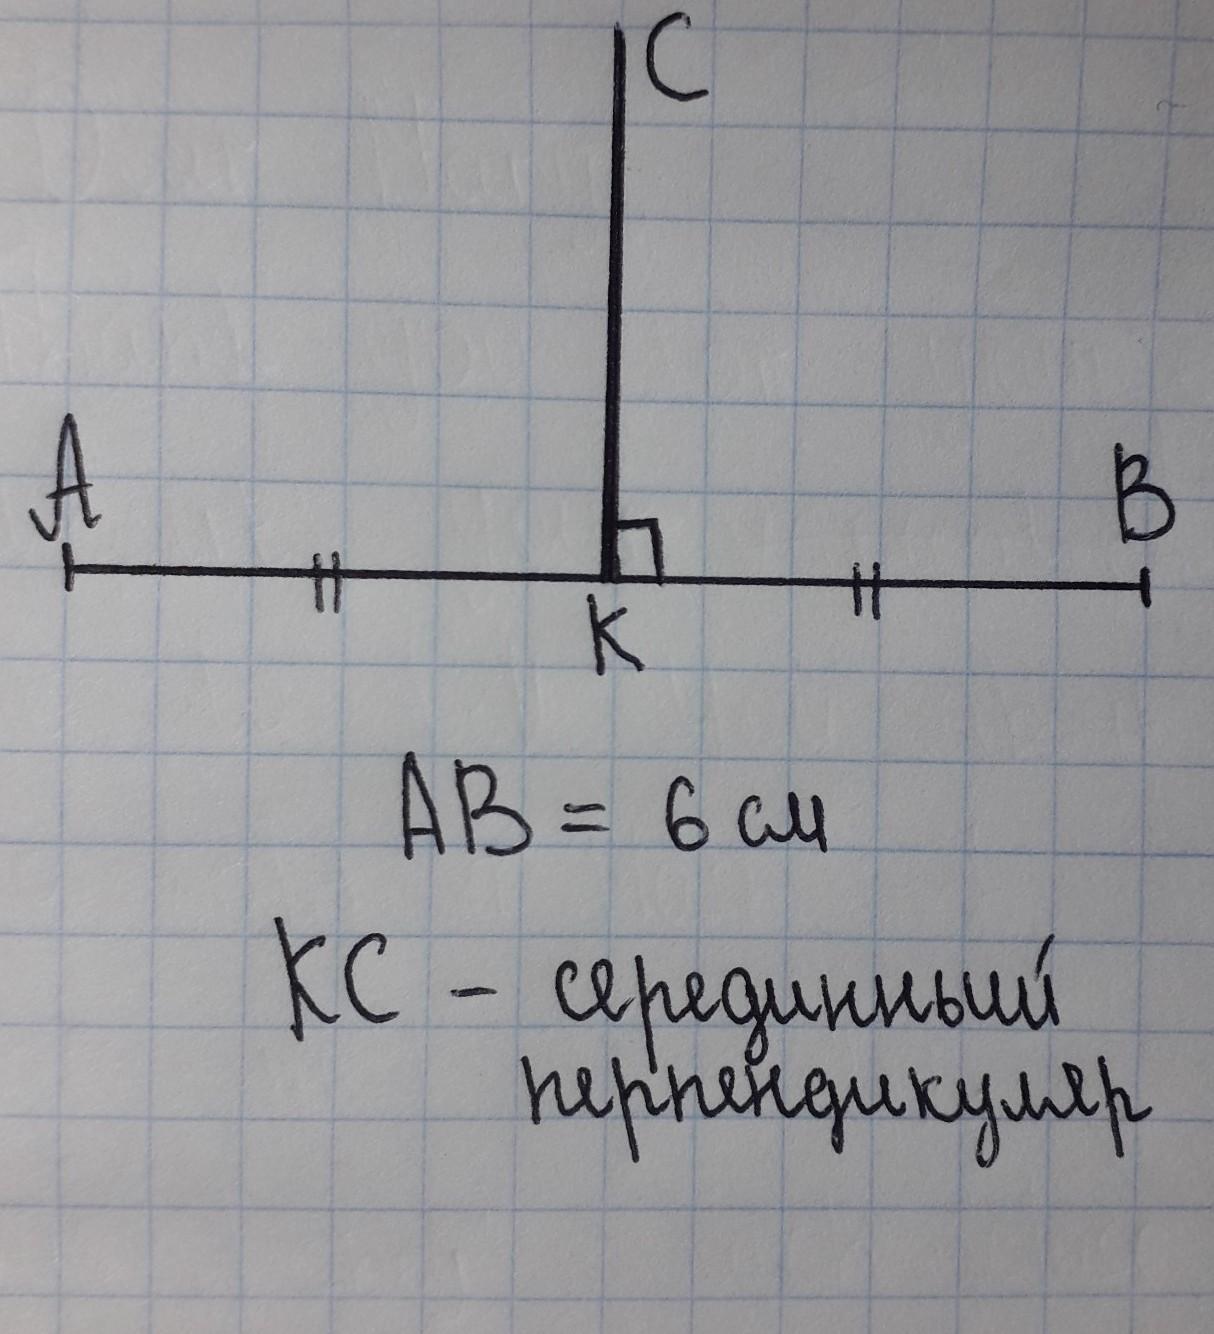 C
A
B
K
AB = 6 см
KC - серединный
перпендикуляр